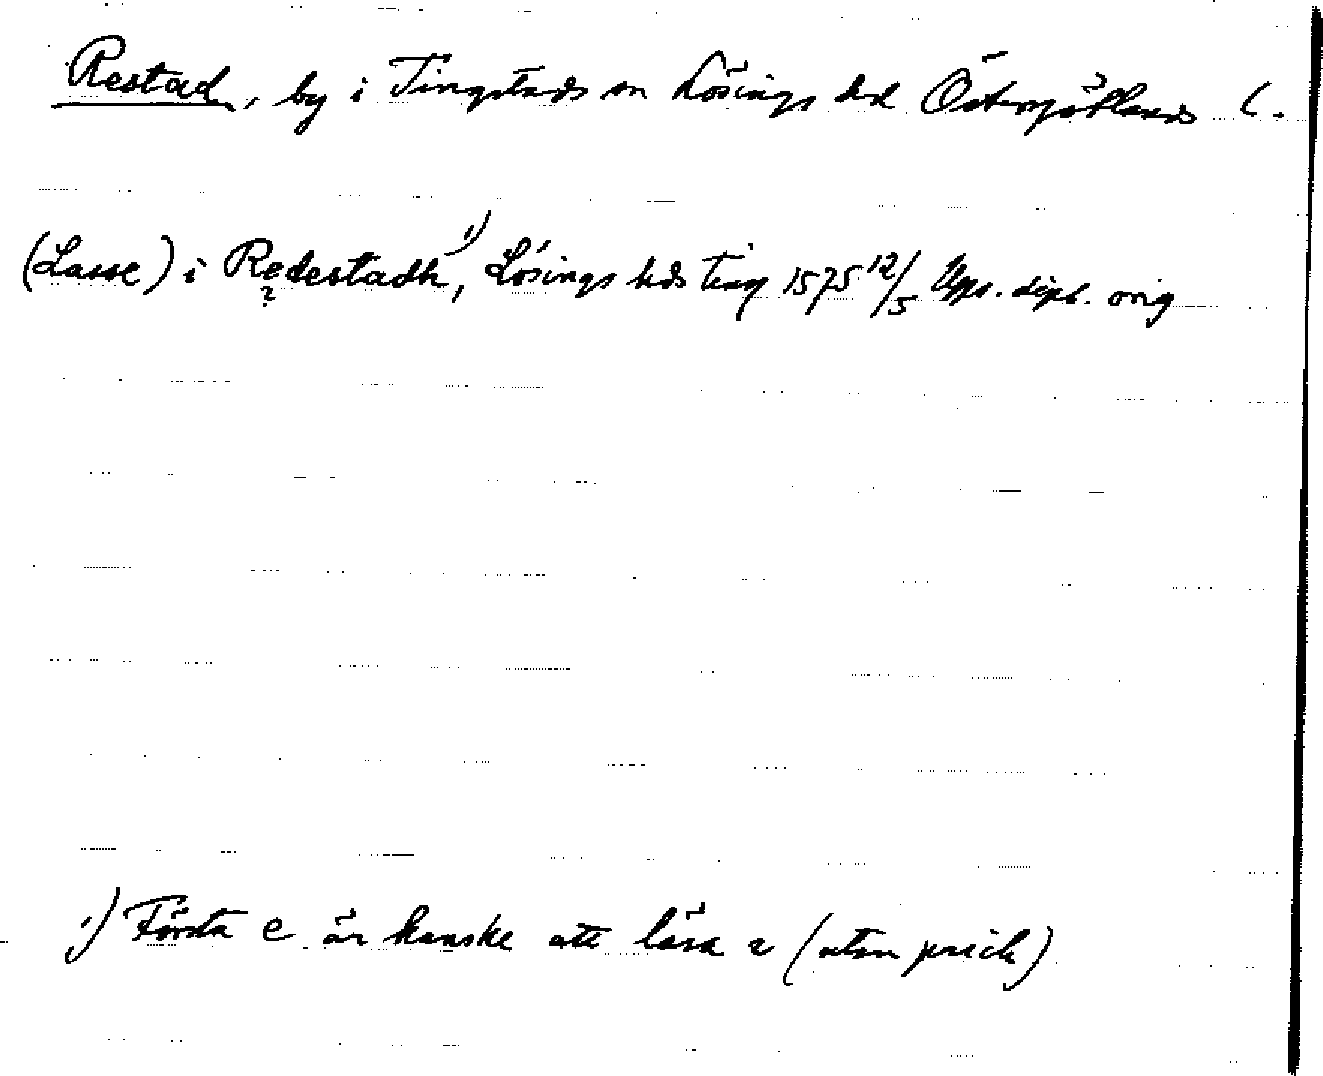 Restad, by i Tingstads sn Lösings hd Östergötlands l.
(Lasse) i Redestadh, 1) Lösings hds ting 1575 12/5 Upps. dipl. orig
?
1) Första e är kanske att läsa i (utan prick)